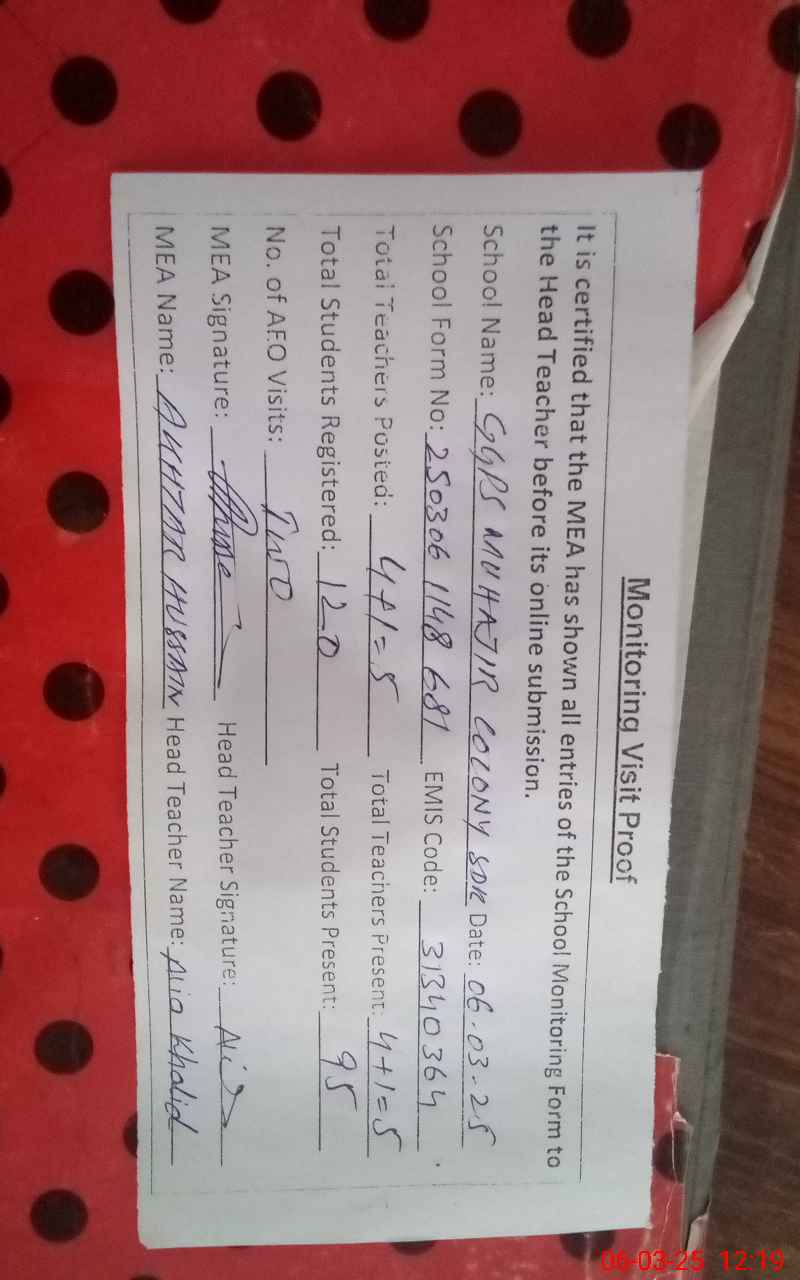 Monitoring Visit Proof
It is certified that the MEA has shown all entries of the School Monitoring Form to
the Head Teacher before its online submission.
School Name: GGPS MUHAJIR COLONY SDK Date: 06.03.25
School Form No: 250306 1148 681 EMIS Code: 31340364
Total Teachers Posted: 4+1=5 Total Teachers Present: 4+1=5
Total Students Registered: 120 Total Students Present: 95
No. of AEO Visits: Two
MEA Signature: Head Teacher Signature:
MEA Name: AKHTAR HUSSAIN Head Teacher Name: Alia Khalid
06-03-25 12:19